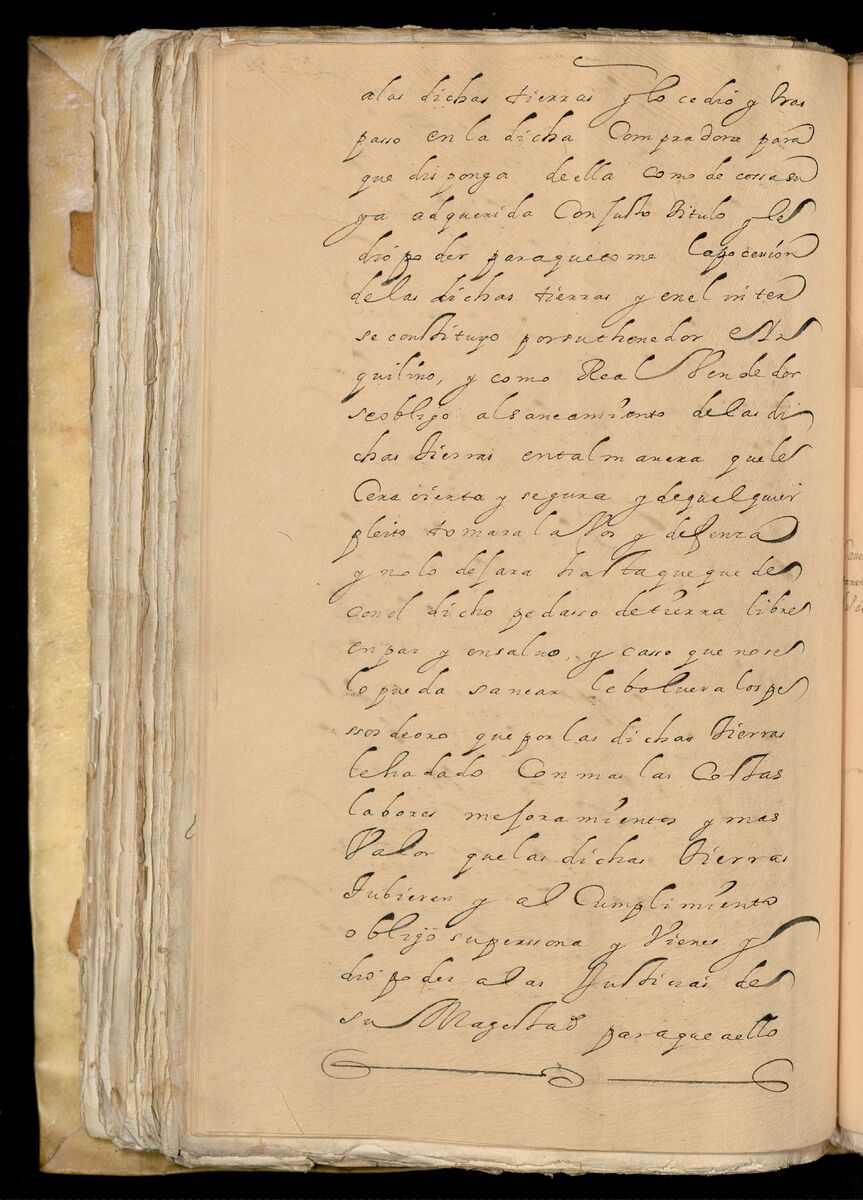 alas dichas tierras y lo cedio y tras
passo en la dicha Compradora para
que disponga de ella como de cossa su
ya adquerida Con justo titulo y le
dio poder para que tome la pocesion
de las dichas tierras y en el inter
se constituyo por su thenedor e Yn
quilino, y como Real Vendedor
se obligo al saneamiento de las di
chas tierras en tal manera que le
Cera cierta y segura y de qualquier
pleito tomara la Vos y defenza
y no lo dejara hasta que quede
con el dicho pedasso de tierra libre
en paz y en saluo, y casso que no se
lo pueda sanear le boluera los pe
ssos de oro que por las dichas tierras
le ha dado Con mas las Costas
labores mejoramientos y mas
Valor que las dichas tierras
tubieren y al Cumplimiento
obligo su perssona y Vienes y
dio poder a las Justicias de
su Magestad para que a ello